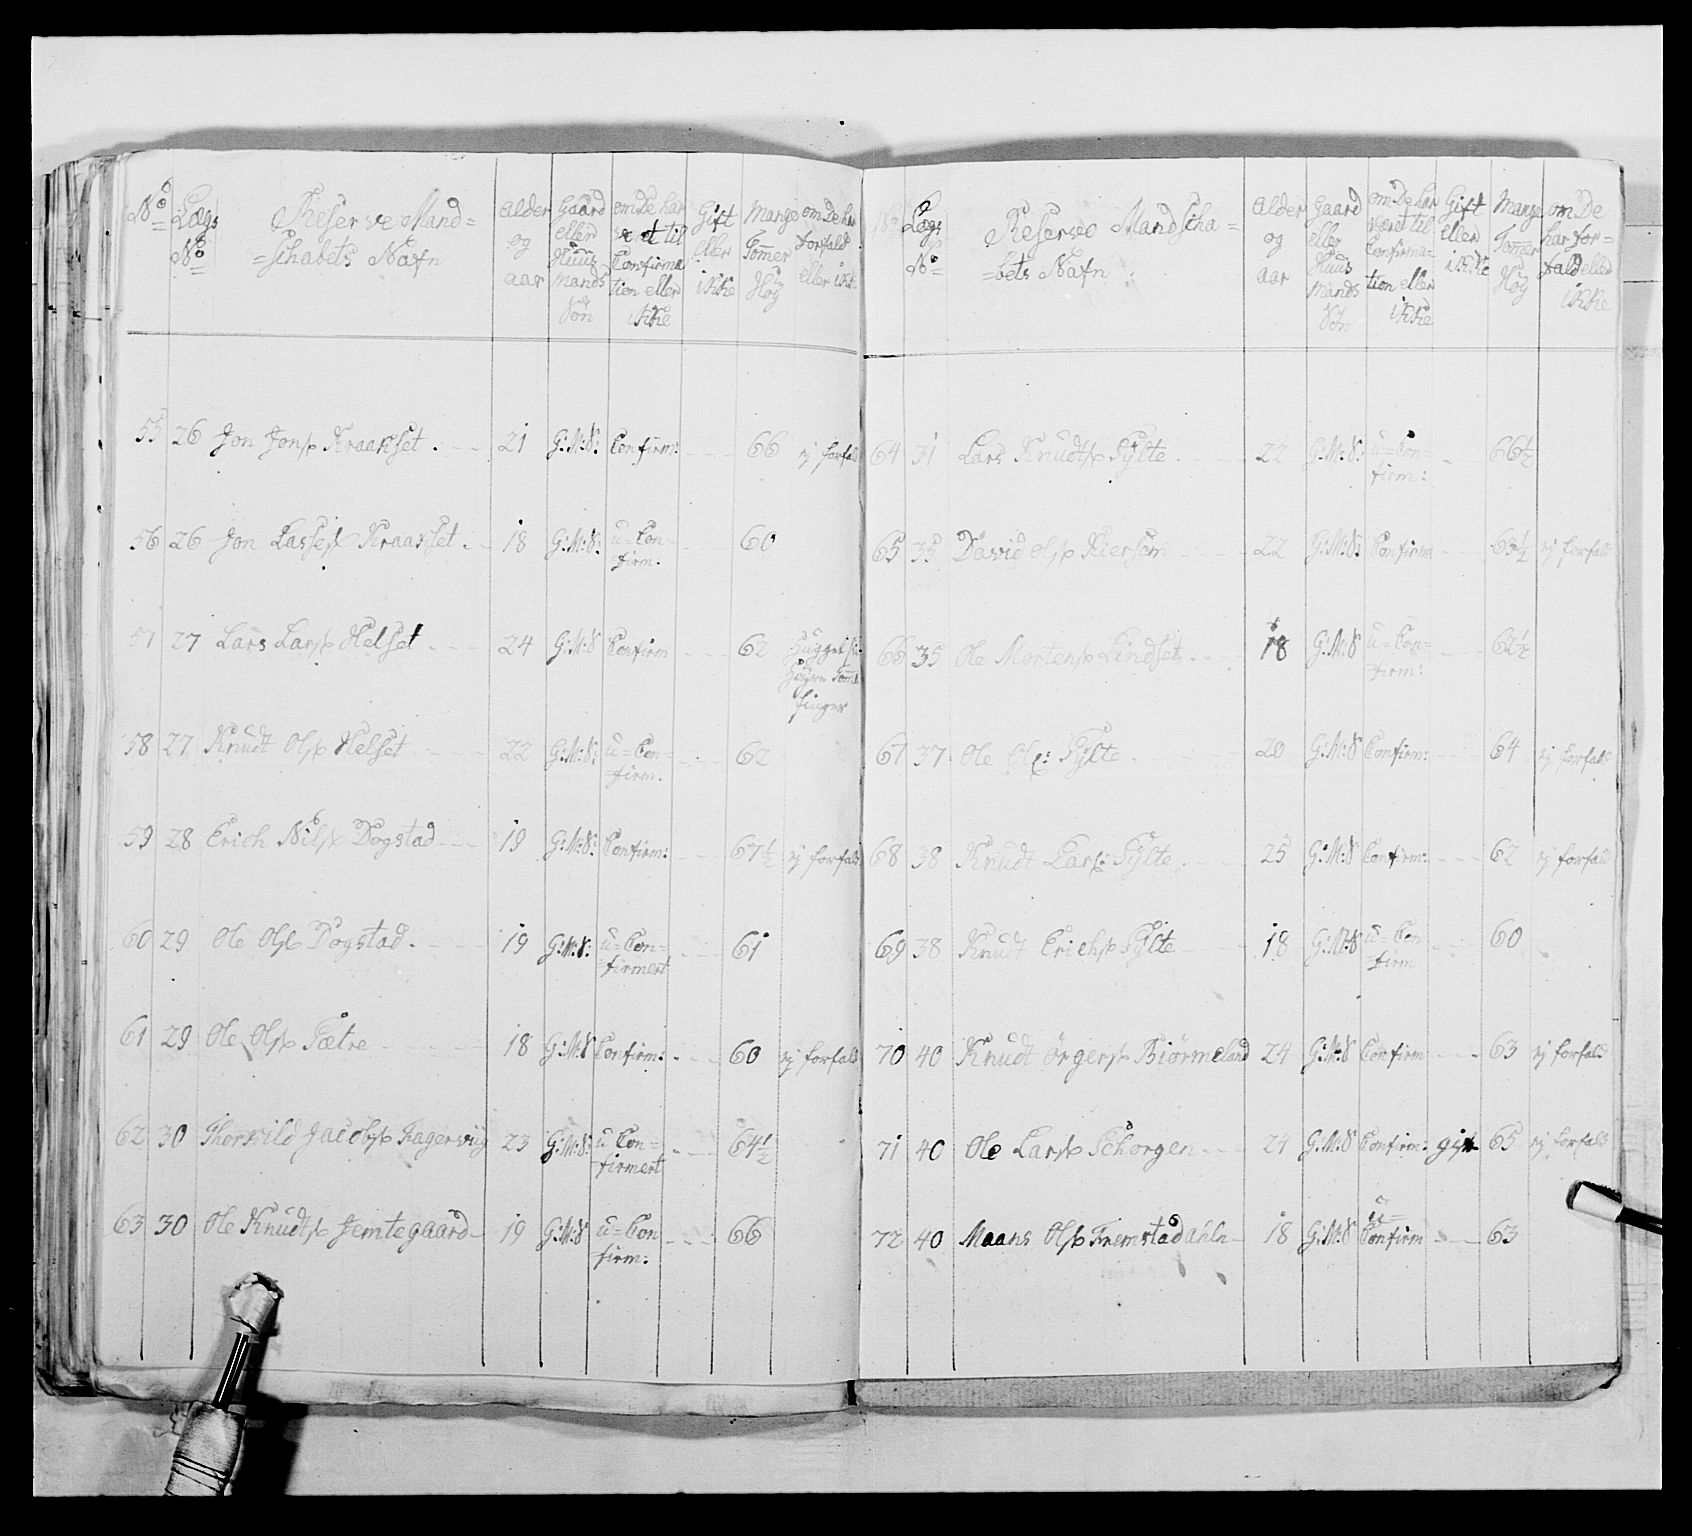 No Lægs No Reserve Mand=schabets Nafn alder og aar Gaard eller Huus mands Søn om De har veret til Confirmation eller ikke Gift eller ikke Mange Tommer Høy om De har forfald eller ikke
55 26 Jon Jons: Kraakset. 21 G:M:S: Confirm: 66 ej forfald
56 26 Jon Lasses: Kraakset. 18 G:M:S: u=Con=
firm: 60
57 27 Lars Lars: Helset 24 G:M:S Confirm 62 Hugget
Høyre Tomel
finger
58 27 Knudt Ols: Helset 22 G:M:S: u=Con=
firm: 62
59 28 Erich Nils: Dogstad 19 G:M:S: Confirm: 67½ ej forfald
60 29 Ole Ols: Dogstad. 19 G:M:S: u=Con=
firmert 61
61 29 Ole Ols: Sætre 18 G:M:S Confirm: 60 ej forfald
62 30 Thorvild Jacobs: Fagerviig 23 G:M:S: u Con=
firmert 64½
63 30 Ole Knudts: Jemtegaard 19 G:M:S u=Con
firm: 66
No Lægs No Reserve Mandscha=bets Nafn: alder og aar Gaard eller Huus Mands Søn om De har været til Confirmation eller ikke Gift eller ikke Mange Tommer Høy om De har for=fald eller ikke
64 31 Lars Knudts: Sylte. 22 G:M:S: u=Con=
firm: 66½
65 35 David Ols: Kiersem 22 G:M:S: Confirm 63½ ej forfald
66 35 Ole Mortens: Lindset 18 G:M:S u=Con=
firm: 62½
67 37 Ole Ols: Sylte. 20 G:M:S Confirm: 64 ej forfald
68 38 Knudt Lars: Sylte. 25 G:M:S Confirm: 62 ej forfald
69 38 Knudt Erichs: Sylte 18 G:M:S u=Con
=firm 60
70 40 Knudt Örgers: Biörmeland 24 G:M:S Confirm 63 ej forfald
71 40 Ole Lars: Schorgen 24 G:M:S Confirm: gift 65 ej forfald
72 40 Maans Ols: Fremstadahln 18 G:M:S u=
Confirm 63